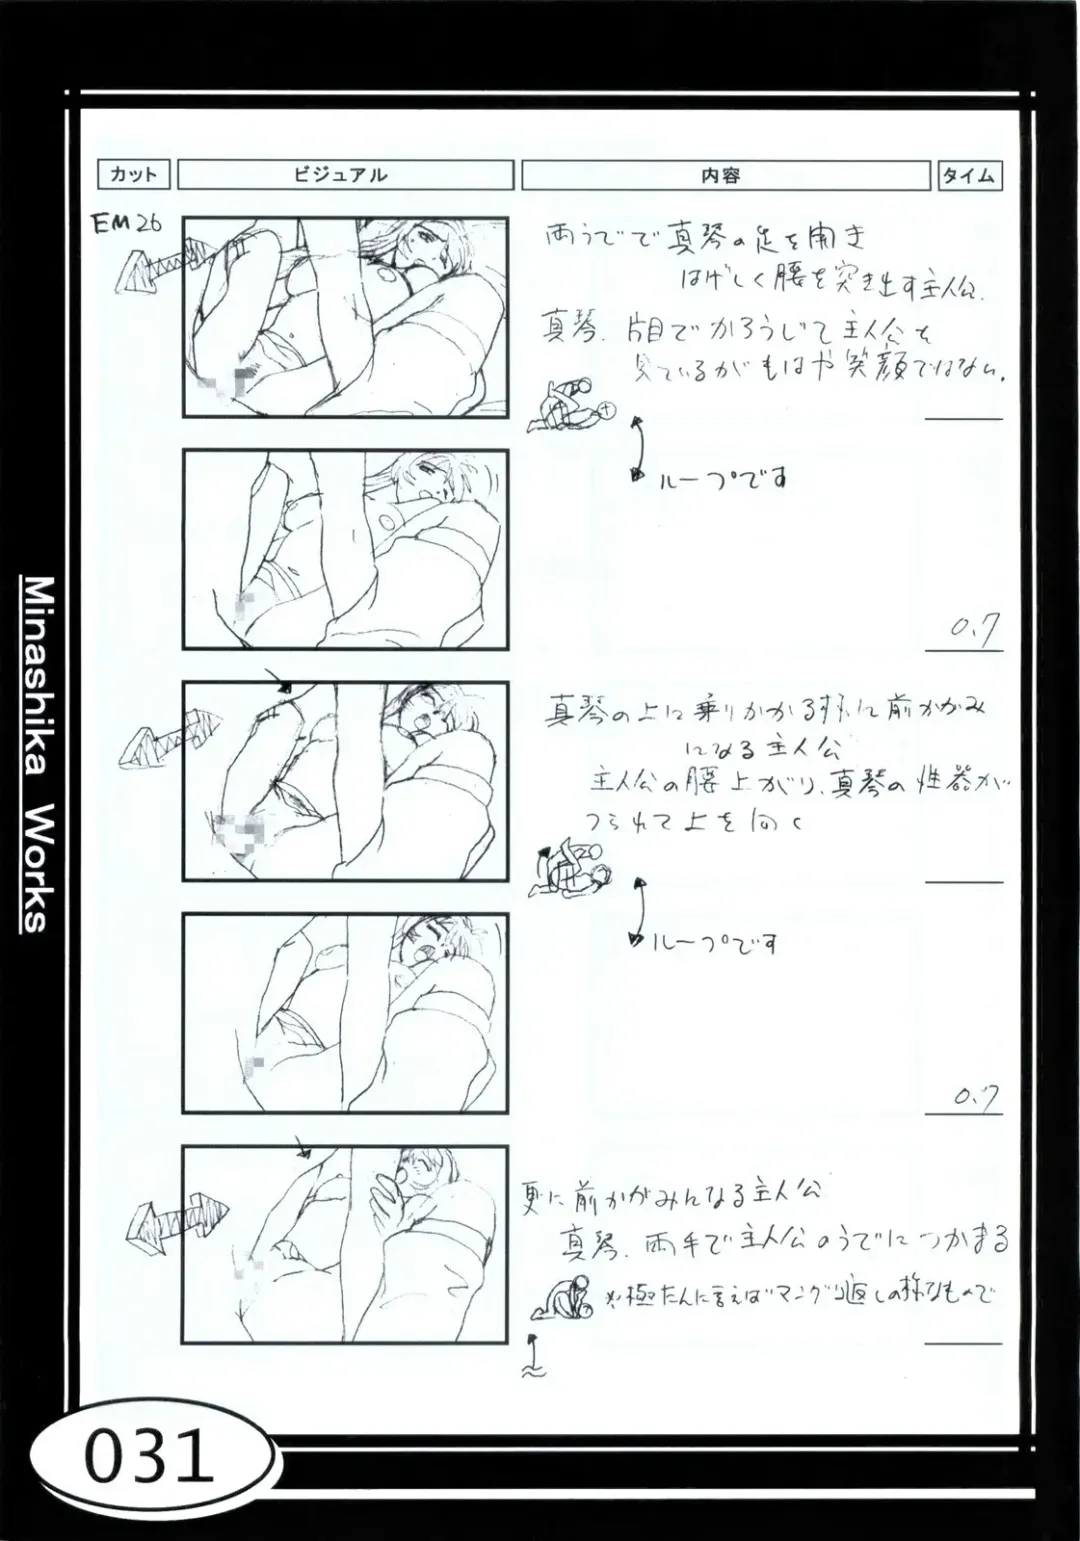 カット ビジュアル 内容 タイム
EM26
両うでで真琴の足を開き
はげしく腰を突き出す主人公.
真琴. 片目でかろうじて主人公を
見ているがもはや笑顔ではない.
ループです
0.7
真琴の上に乗りかかる様に前かがみ
になる主人公
主人公の腰上がり、真琴の性器が
つられて上を向く
ループです
0.7
更に前かがみんなる主人公
真琴. 両手で主人公のうでにつかまる
※極たんに言えばマングリ返しの様なもので
Minashika Works
031